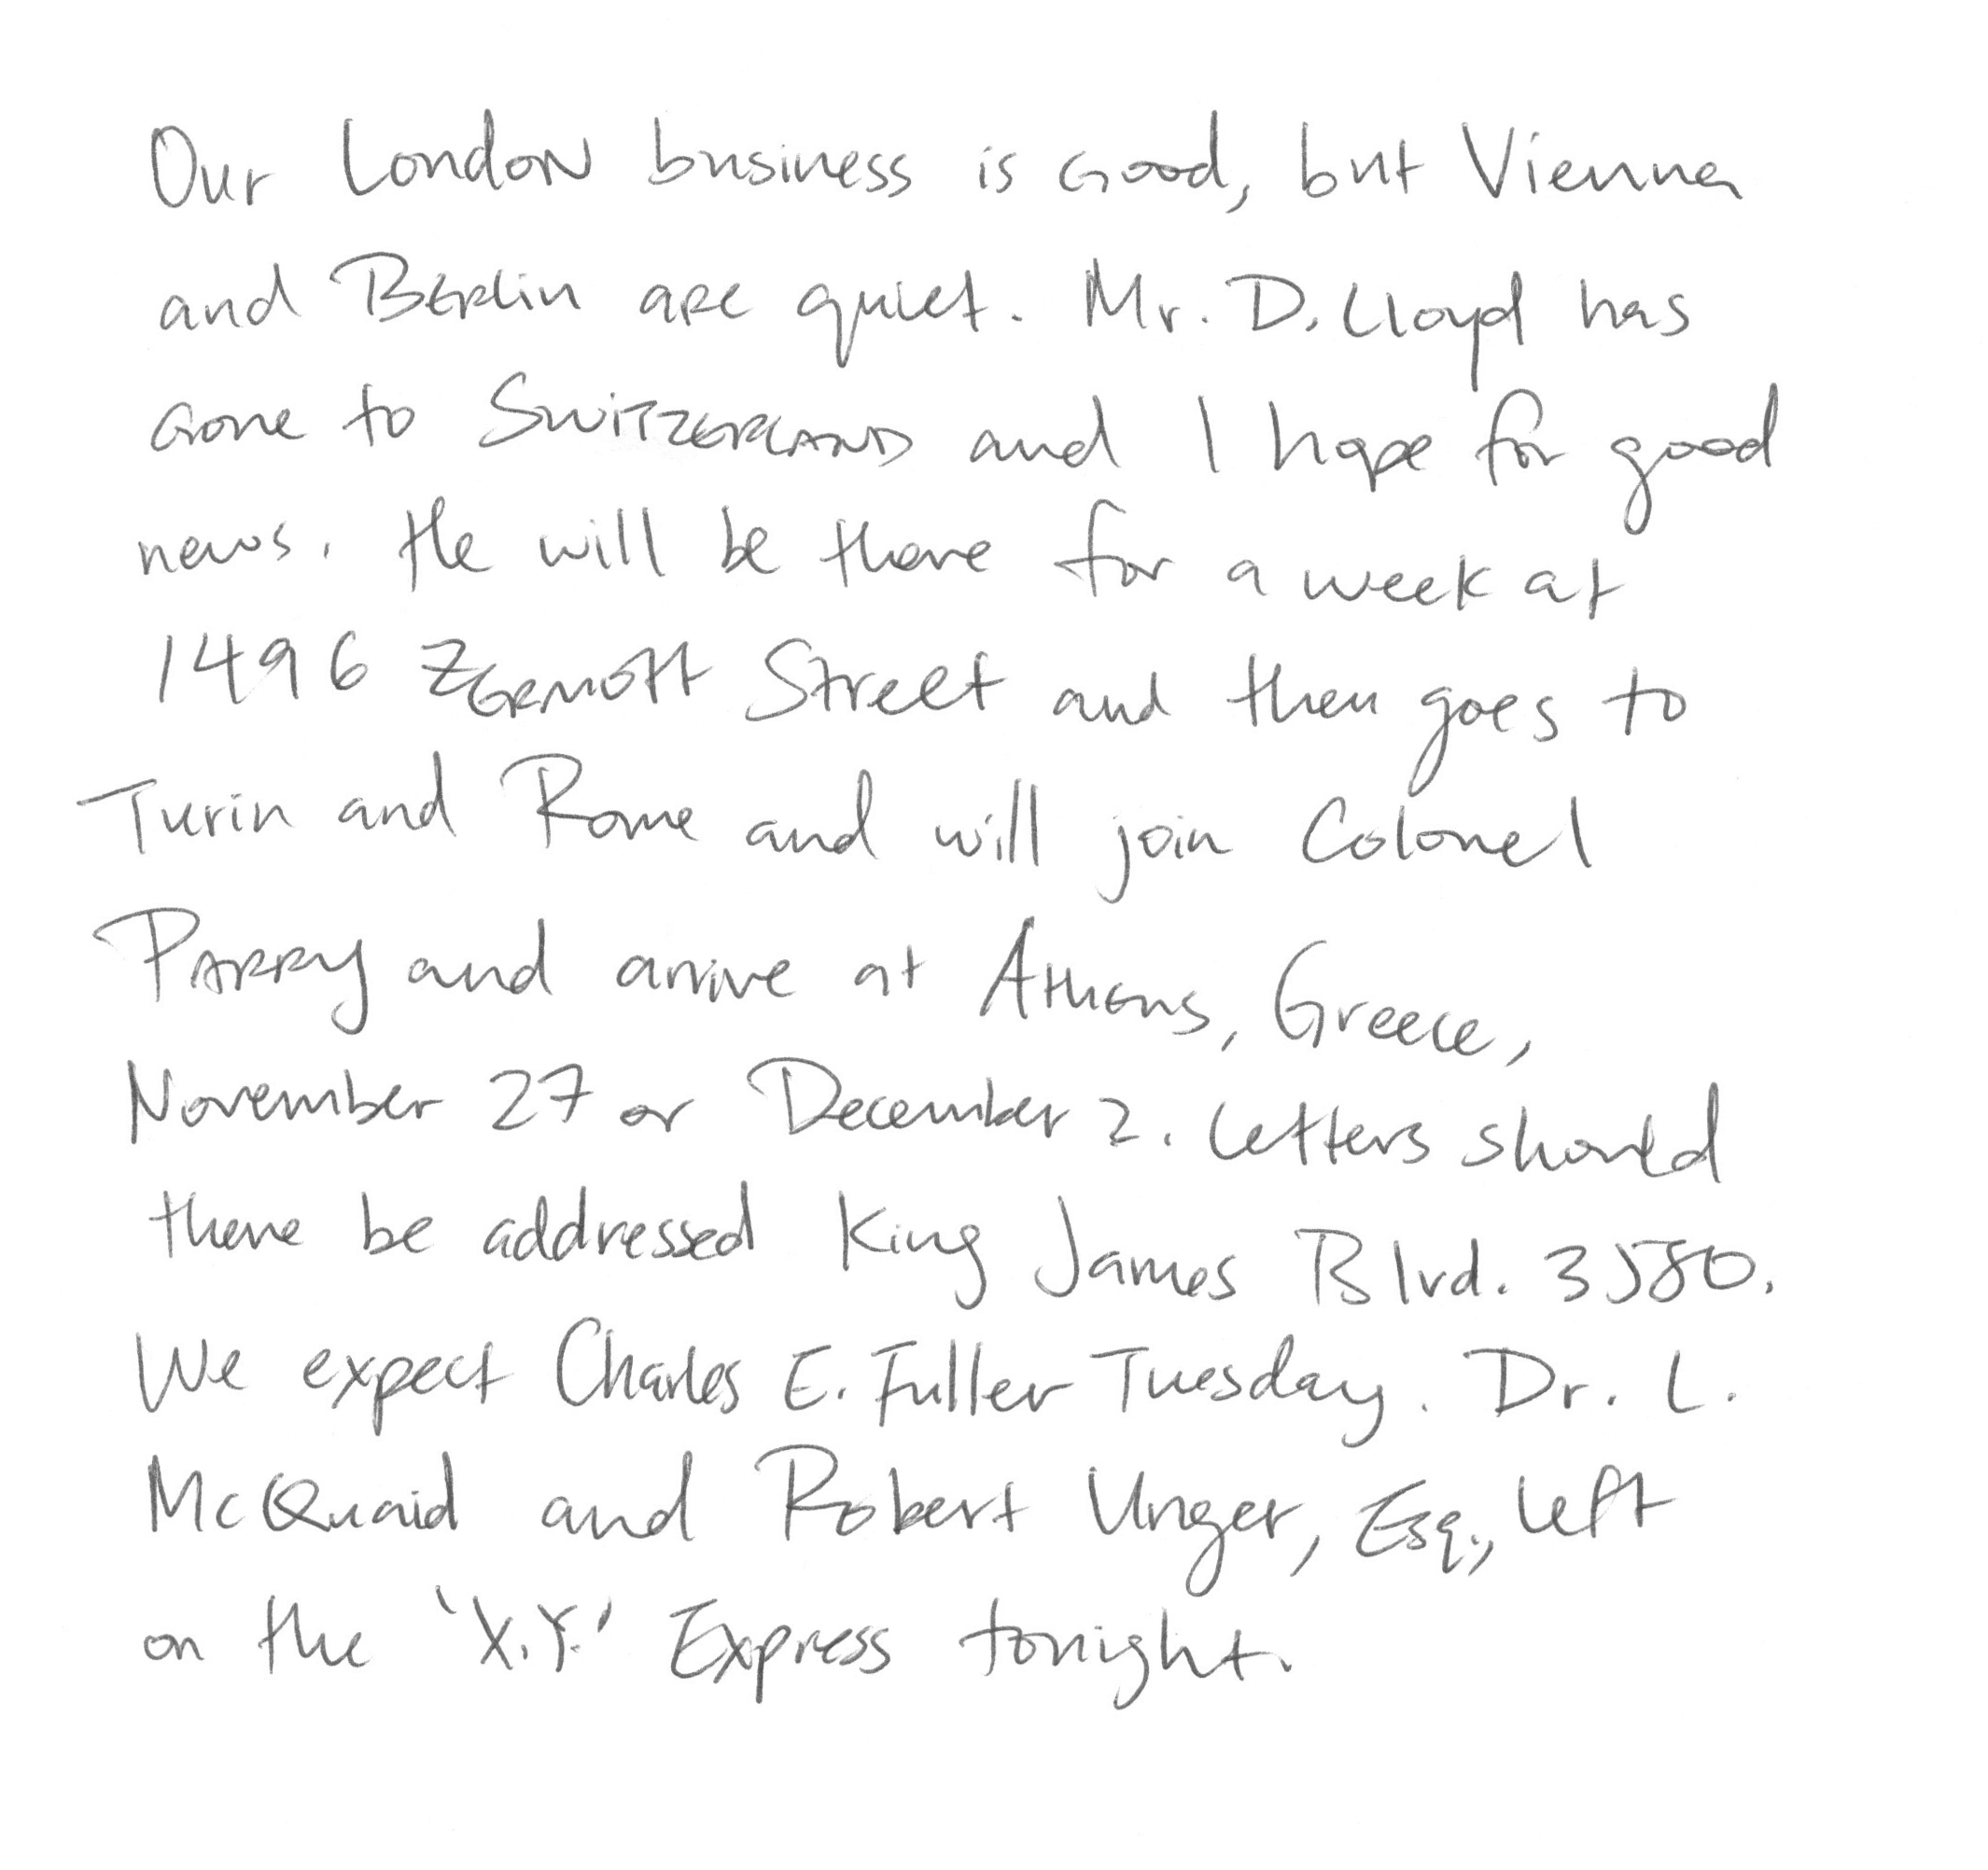 Our London business is good, but Vienna
and Berlin are quiet. Mr. D. Lloyd has
gone to Switzerland and I hope for good
news. He will be there for a week at
1496 Zermott Street and then goes to
Turin and Rome and will join Colonel
Parry and arrive at Athens, Greece,
November 27 or December 2. Letters should
there be addressed King James Blvd. 3580.
We expect Charles E. Fuller Tuesday. Dr. L.
McQuaid and Robert Unger, Esq., left
on the 'X.Y.' Express tonight.